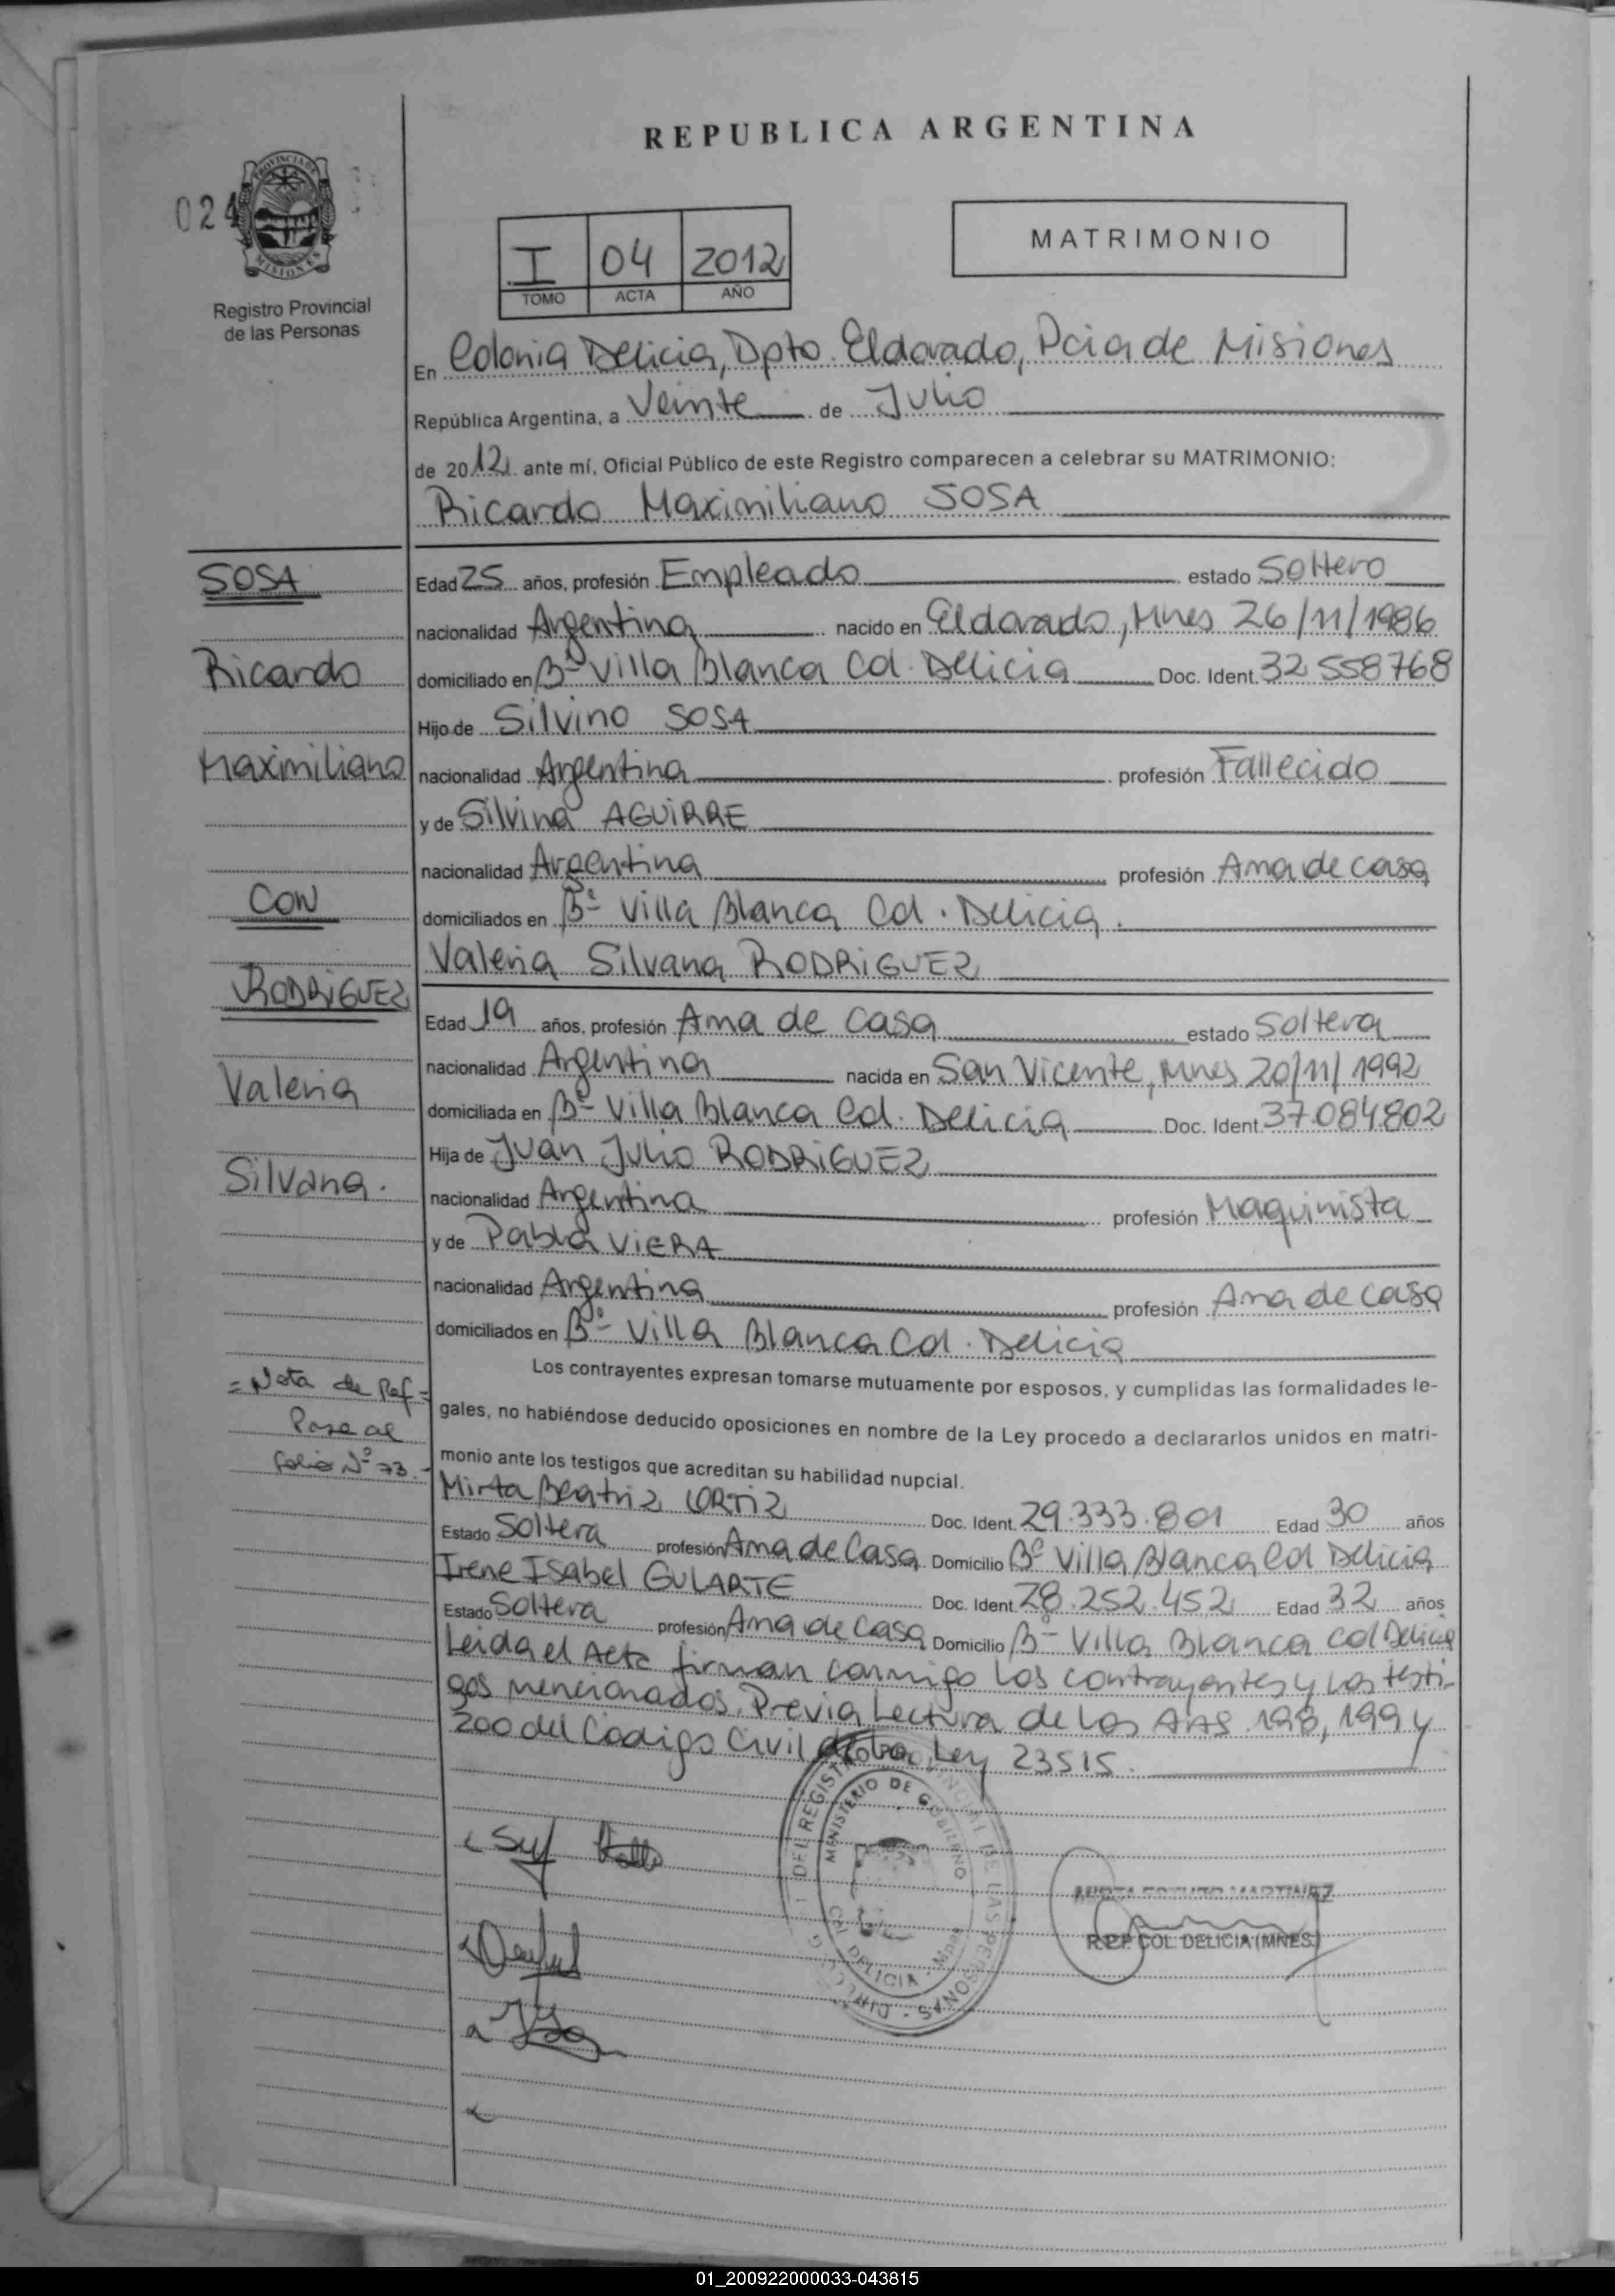 REPUBLICA ARGENTINA
024
PROVINCIA DE
MISIONES
Registro Provincial
de las Personas
I 04 2012
TOMO ACTA AÑO
MATRIMONIO
En Colonia Delicia, Dpto. Eldorado, Pcia de Misiones
República Argentina, a Veinte de Julio
de 2012 ante mí, Oficial Público de este Registro comparecen a celebrar su MATRIMONIO:
Ricardo Maximiliano SOSA
SOSA
Ricardo
Maximiliano
CON
RODRIGUEZ
Valeria
Silvana.
= Nota de Ref =
Pase al
folio Nº 73.-
Edad 25 años, profesión Empleado estado Soltero
nacionalidad Argentina nacido en Eldorado, Mnes 26/11/1986
domiciliado en Bº Villa Blanca Col. Delicia Doc. Ident. 32558768
Hijo de Silvino SOSA
nacionalidad Argentina profesión Fallecido
y de Silvina AGUIRRE
nacionalidad Argentina profesión Ama de casa
domiciliados en Bº Villa Blanca Col. Delicia.
Valeria Silvana RODRIGUEZ
Edad 19 años, profesión Ama de casa estado Soltera
nacionalidad Argentina nacida en San Vicente, Mnes 20/11/1992
domiciliada en Bº Villa Blanca Col. Delicia Doc. Ident. 37.084.802
Hija de Juan Julio RODRIGUEZ
nacionalidad Argentina profesión Maquinista
y de Pabla VIERA
nacionalidad Argentina profesión Ama de casa
domiciliados en Bº Villa Blanca Col. Delicia
Los contrayentes expresan tomarse mutuamente por esposos, y cumplidas las formalidades le-
gales, no habiéndose deducido oposiciones en nombre de la Ley procedo a declararlos unidos en matri-
monio ante los testigos que acreditan su habilidad nupcial.
Mirta Beatriz ORTIZ Doc. Ident. 29.333.801 Edad 30 años
Estado Soltera profesión Ama de Casa Domicilio Bº Villa Blanca Col Delicia
Irene Isabel GULARTE Doc. Ident. 28.252.452 Edad 32 años
Estado Soltera profesión Ama de Casa Domicilio Bº Villa Blanca Col Delicia
Leida el Acta firman conmigo los contrayentes y los testi-
gos mencionados. Previa Lectura de los Arts. 198, 199 y
200 del Codigo Civil de la Ley 23515.
DEL REGISTRO PROVINCIAL DE LAS PERSONAS
MINISTERIO DE GOBIERNO
COL. DELICIA - Mnes
MARTINEZ
R.P.P. COL. DELICIA (MNES.)
01_200922000033-043815